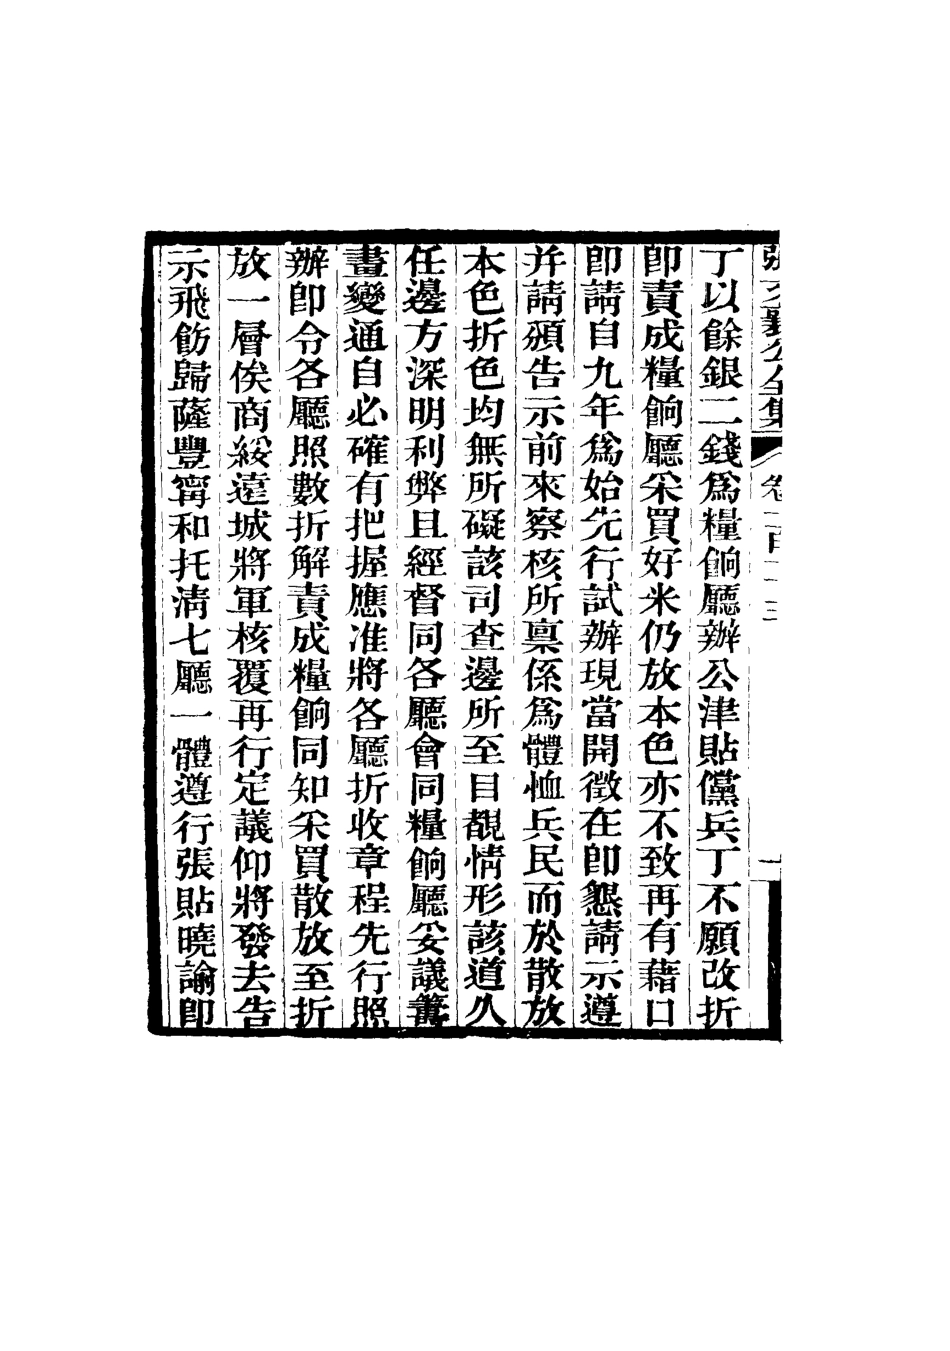 張文襄公全集 卷一百一十三
丁以餘銀二錢爲糧餉廳辦公津貼儻兵丁不願改折
卽責成糧餉廳采買好米仍放本色亦不致再有藉口
卽請自九年爲始先行試辦現當開徵在卽懇請示遵
并請頒告示前來察核所稟係爲體恤兵民而於散放
本色折色均無所礙該司查邊所至目覩情形該道久
任邊方深明利弊且經督同各廳會同糧餉廳妥議籌
畫變通自必確有把握應准將各廳折收章程先行照
辦卽令各廳照數折解責成糧餉同知采買散放至折
放一層俟商綏遠城將軍核覆再行定議仰將發去告
示飛飭歸薩豐甯和托淸七廳一體遵行張貼曉諭卽